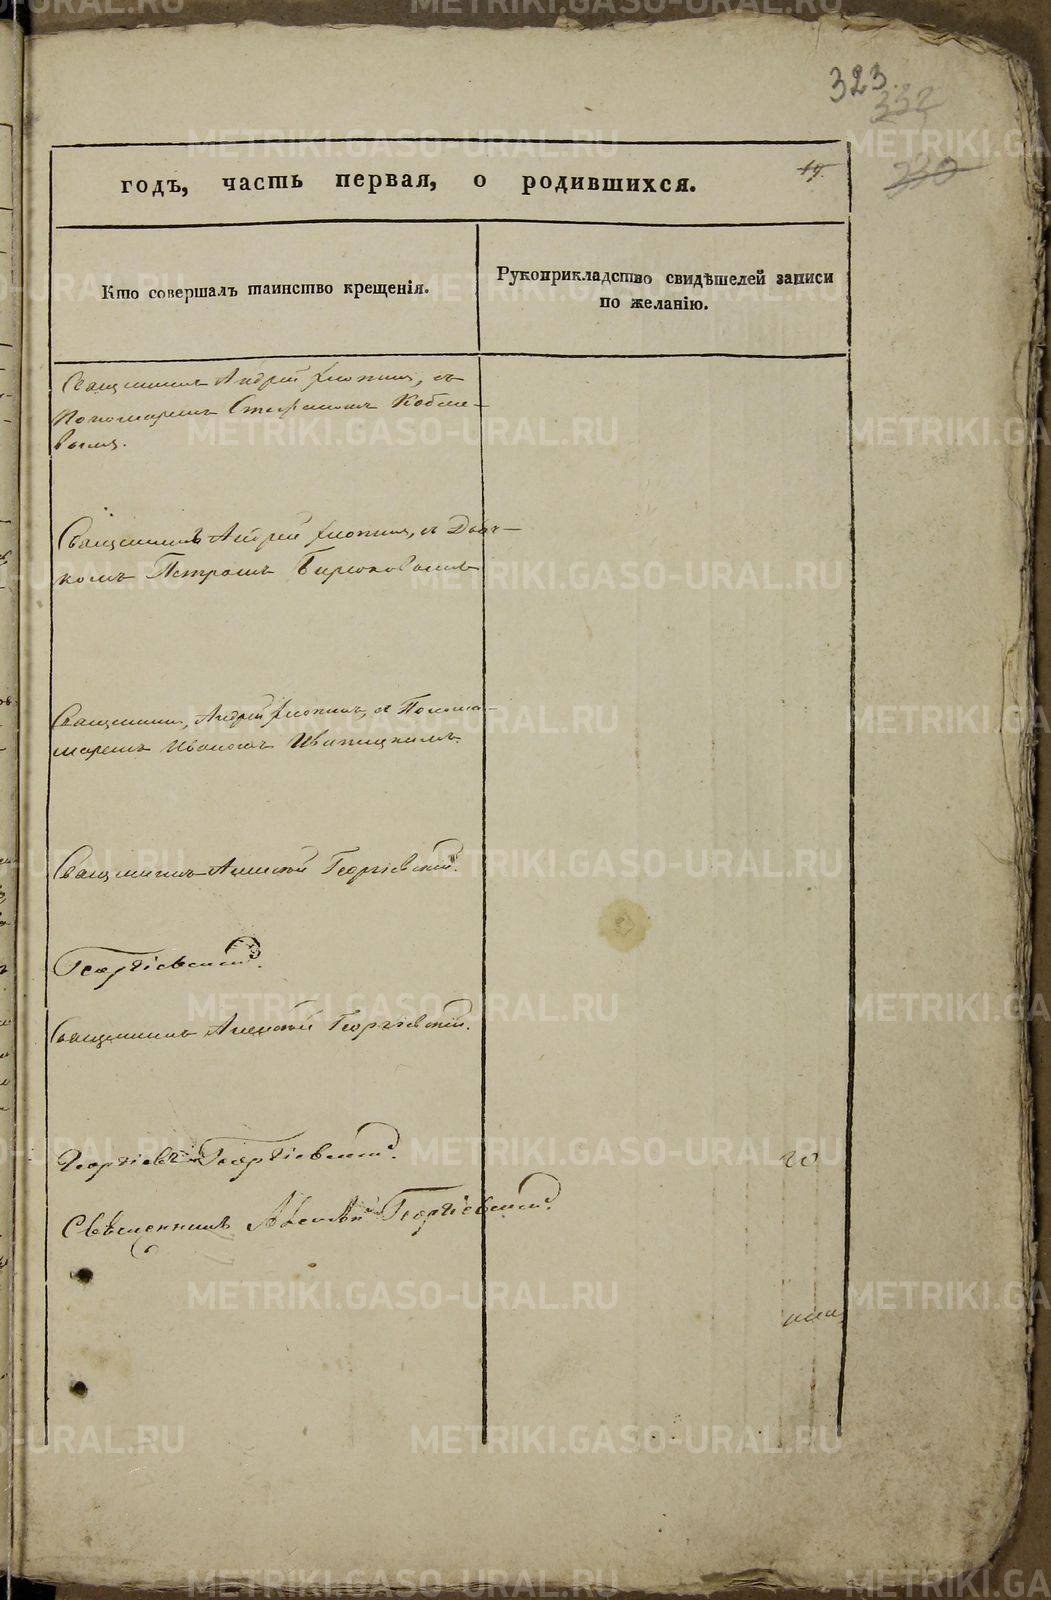 323.
332
330
годъ, часть первая, о родившихся.
19.
Кто совершалъ таинство крещенія.
Рукоприкладство свидѣтелей записи
по желанію.
Священникъ Андрей съ
Пономаремъ Стефаномъ Кобле-
вымъ.
Священникъ Андрей съ Дьяч-
комъ Петромъ Бирюковымъ
Священникъ Андрей съ Поно-
маремъ Иваномъ
Священникъ Алексѣй Георгіевскій.
Георгіевскій.
Священникъ Алексѣй Георгіевскій.
Георгіевскій.
Священникъ Алексѣй Георгіевскій.
20
METRIKI.GASO-URAL.RU